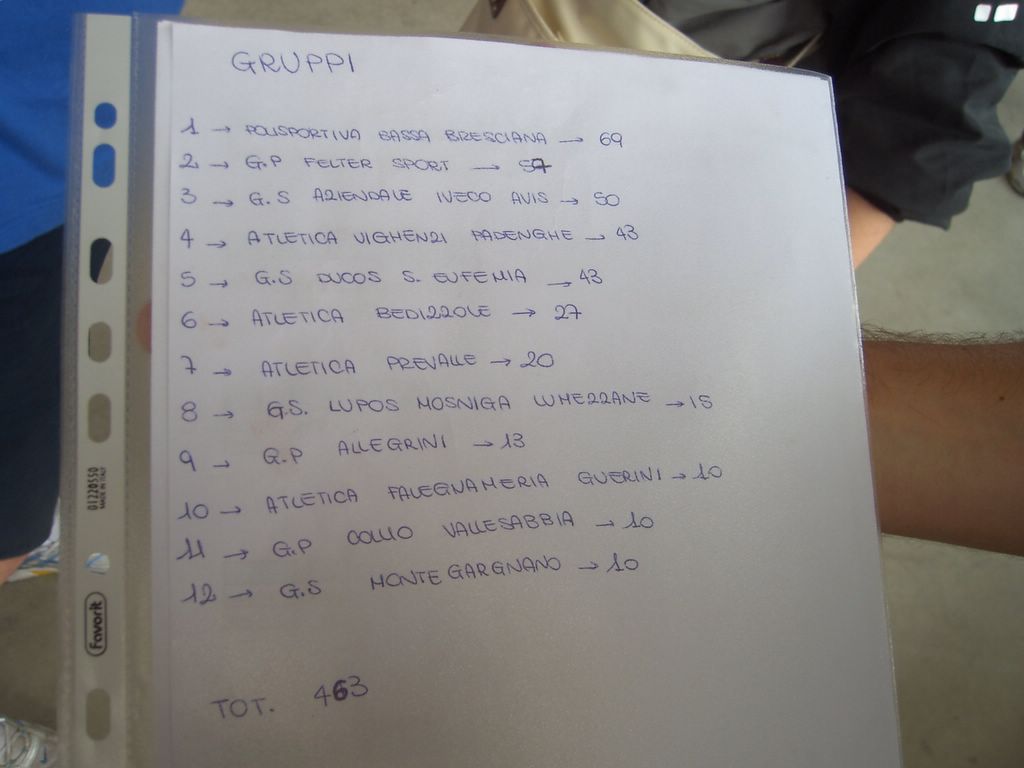 GRUPPI
1 → POLISPORTIVA BASSA BRESCIANA → 69
2 → G.P FELTER SPORT → 57
3 → G.S AZIENDALE IVECO AVIS → 50
4 → ATLETICA VIGHENZI PADENGHE → 43
5 → G.S DUCOS S. EUFEMIA → 43
6 → ATLETICA BEDIZZOLE → 27
7 → ATLETICA PREVALLE → 20
8 → G.S. LUPOS MOSNIGA LUMEZZANE → 15
9 → G.P ALLEGRINI → 13
10 → ATLETICA FALEGNAMERIA GUERINI → 10
11 → G.P COLLIO VALLESABBIA → 10
12 → G.S MONTEGARGNANO → 10
TOT. 463
01220550
MADE IN ITALY
Favorit